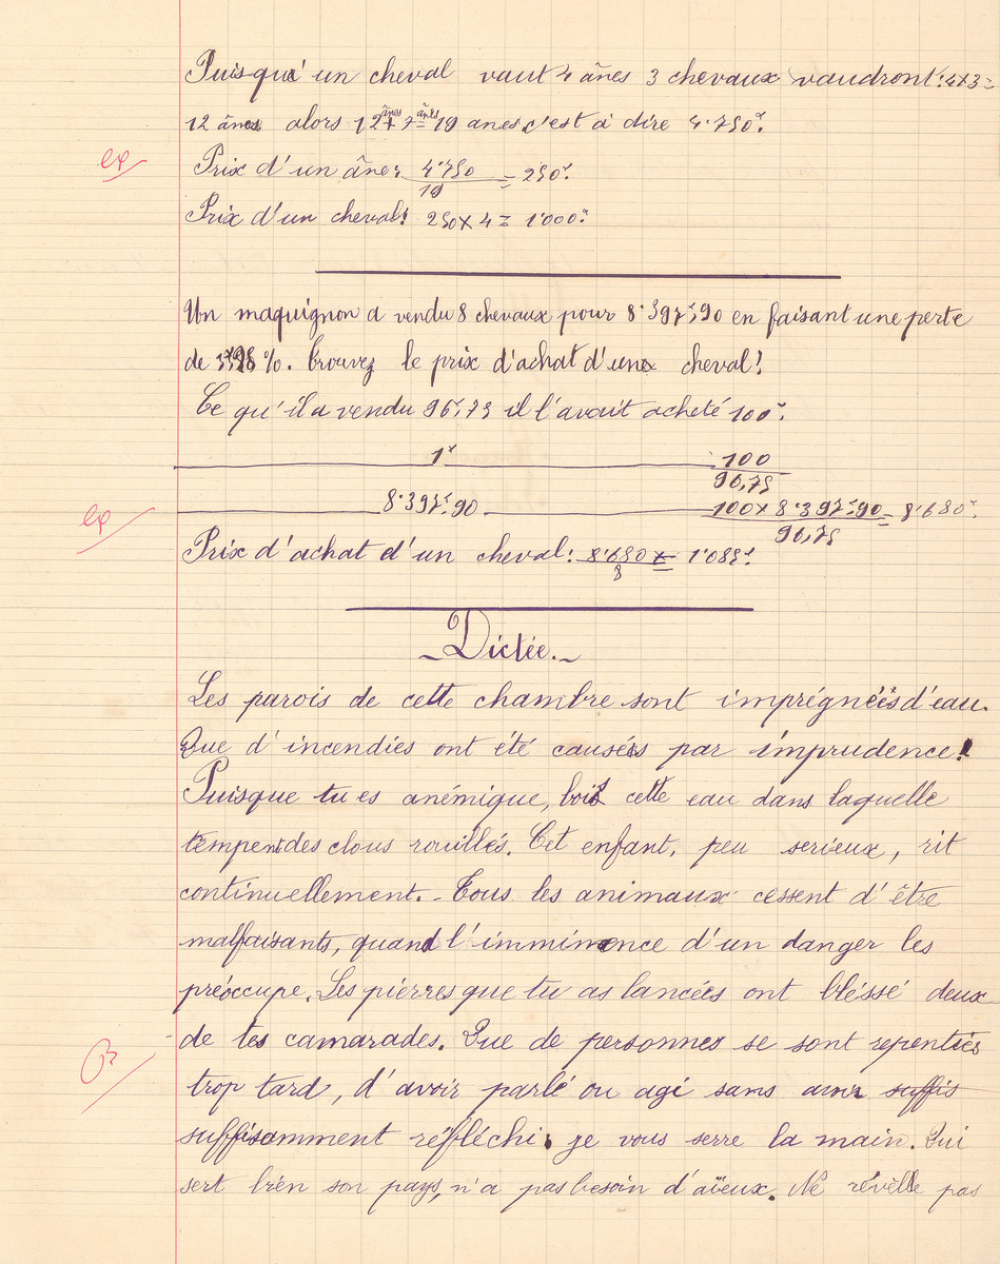 Puisqu'un cheval vaut 4 ânes 3 chevaux vaudront: 4x3=
12 ânes alors 12 ânes + 7 ânes = 19 anes c'est à dire 4.750f.
ex
Prix d'un âne: 4.750/19 = 250f.
Prix d'un cheval: 250 x 4 = 1.000f.
Un maquignon a vendu 8 chevaux pour 8.397f,90 en faisant une perte
de %. Trouvez le prix d'achat d'une cheval!
Ce qu'il a vendu 96f,75 il l'avait acheté 100f.
1f 100/96,75
ex
8.397f,90 100 x 8.397f,90/96,75 = 8.680f.
Prix d'achat d'un cheval: 8.680f/8 = 1.085f.
Dictée.
Les parois de cette chambre sont imprégnées d'eau.
Que d'incendies ont été causés par imprudence!
Puisque tu es anémique, bois cette eau dans laquelle
trempent des clous rouillés. Cet enfant, peu serieux, rit
continuellement. - Tous les animaux cessent d'être
malfaisants, quand l'imminence d'un danger les
préoccupe. Les pierres que tu as lancées ont bléssé deux
de tes camarades. Que de personnes se sont repenties
trop tard, d'avoir parlé ou agi sans avoir suffis
suffisamment réfléchi. je vous serre la main. Qui
sert bien son pays, n'a pas besoin d'aïeux. Ne révèlle pas